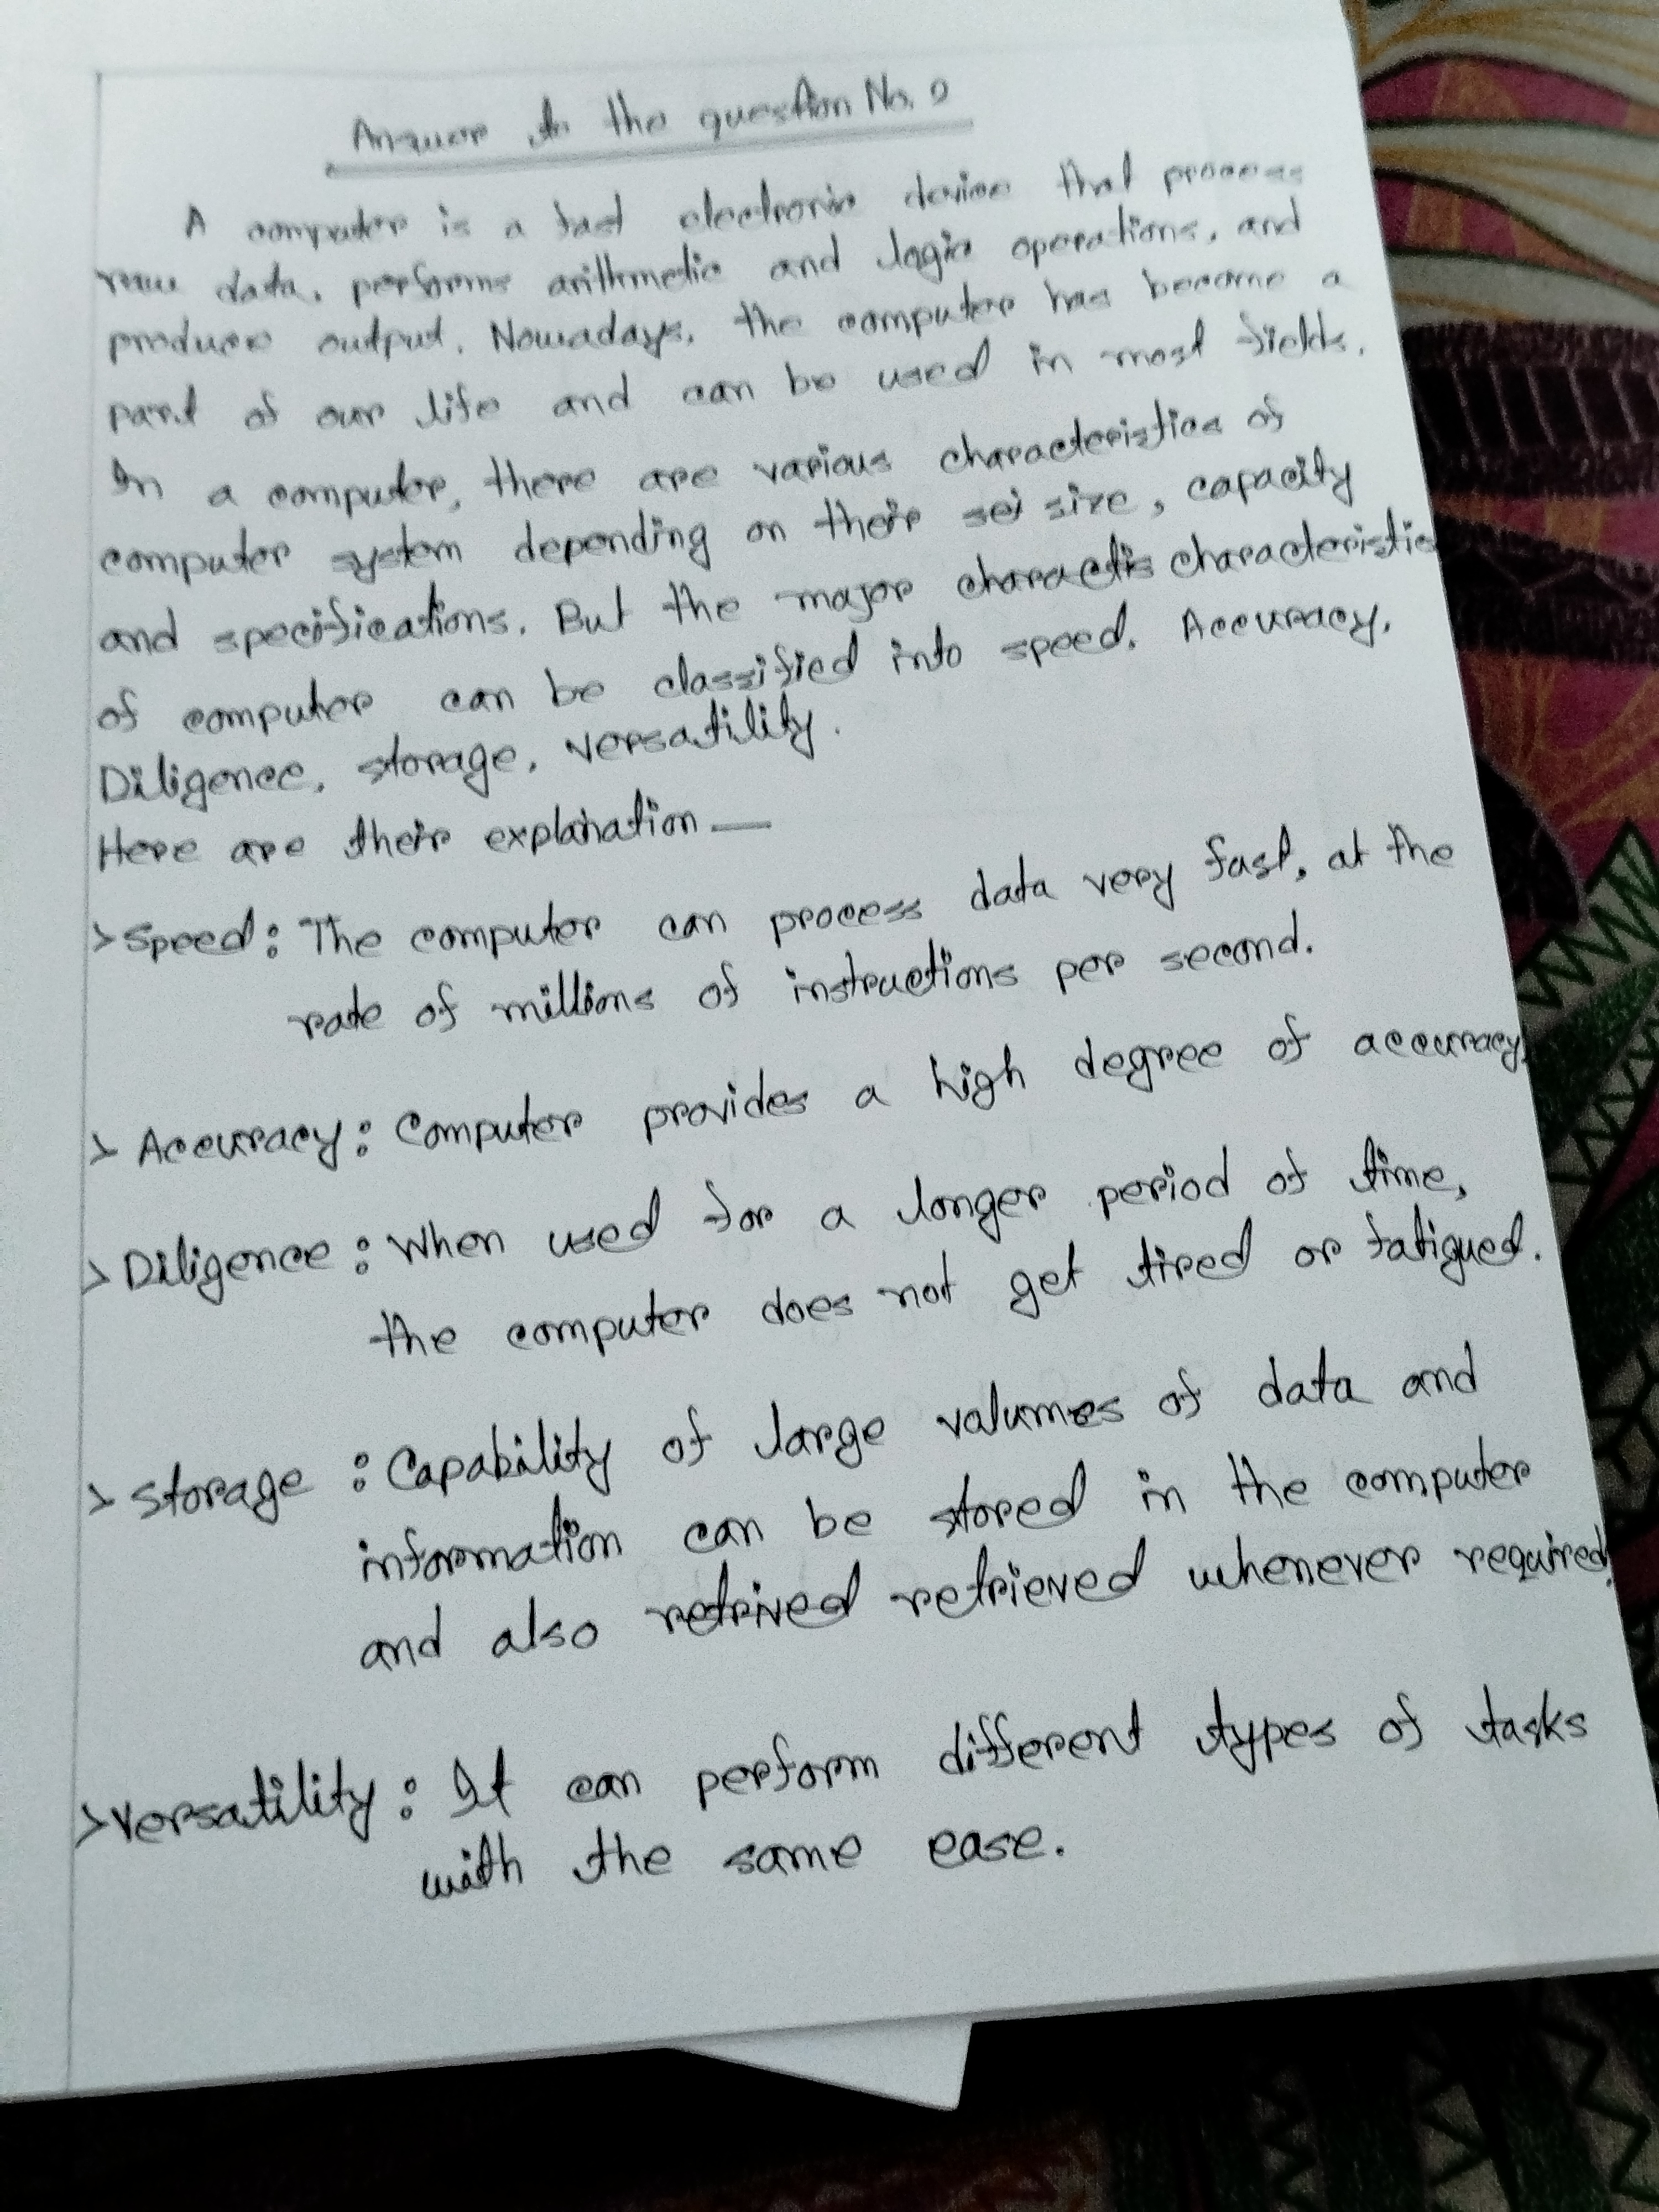 Answer to the question No. 2
A computer is a fast electronic device that process
raw data, performs arithmetic and logic operations, and
produce output. Nowadays, the computer has become a
part of our life and can be used in most fields.
In a computer, there are various characteristics of
computer system depending on their size, capacity
and specifications. But the major characteristic
of computer can be classified into speed. Accuracy,
Diligence, storage, versatility.
Here are their explanation —
> Speed : The computer can process data very fast, at the
rate of millions of instructions per second.
> Accuracy : Computer provides a high degree of accuracy.
> Diligence : When used for a longer period of time,
the computer does not get tired or fatigued.
> Storage : Capability of large valumes of data and
information can be stored in the computer
and also retrived retrieved whenever required.
> Versatility : It can perform different types of tasks
with the same ease.